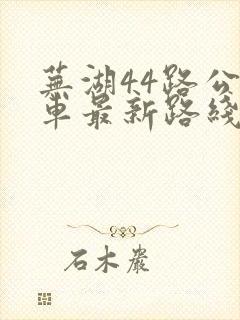 蕪湖44路公
車最新路綫
石木巖